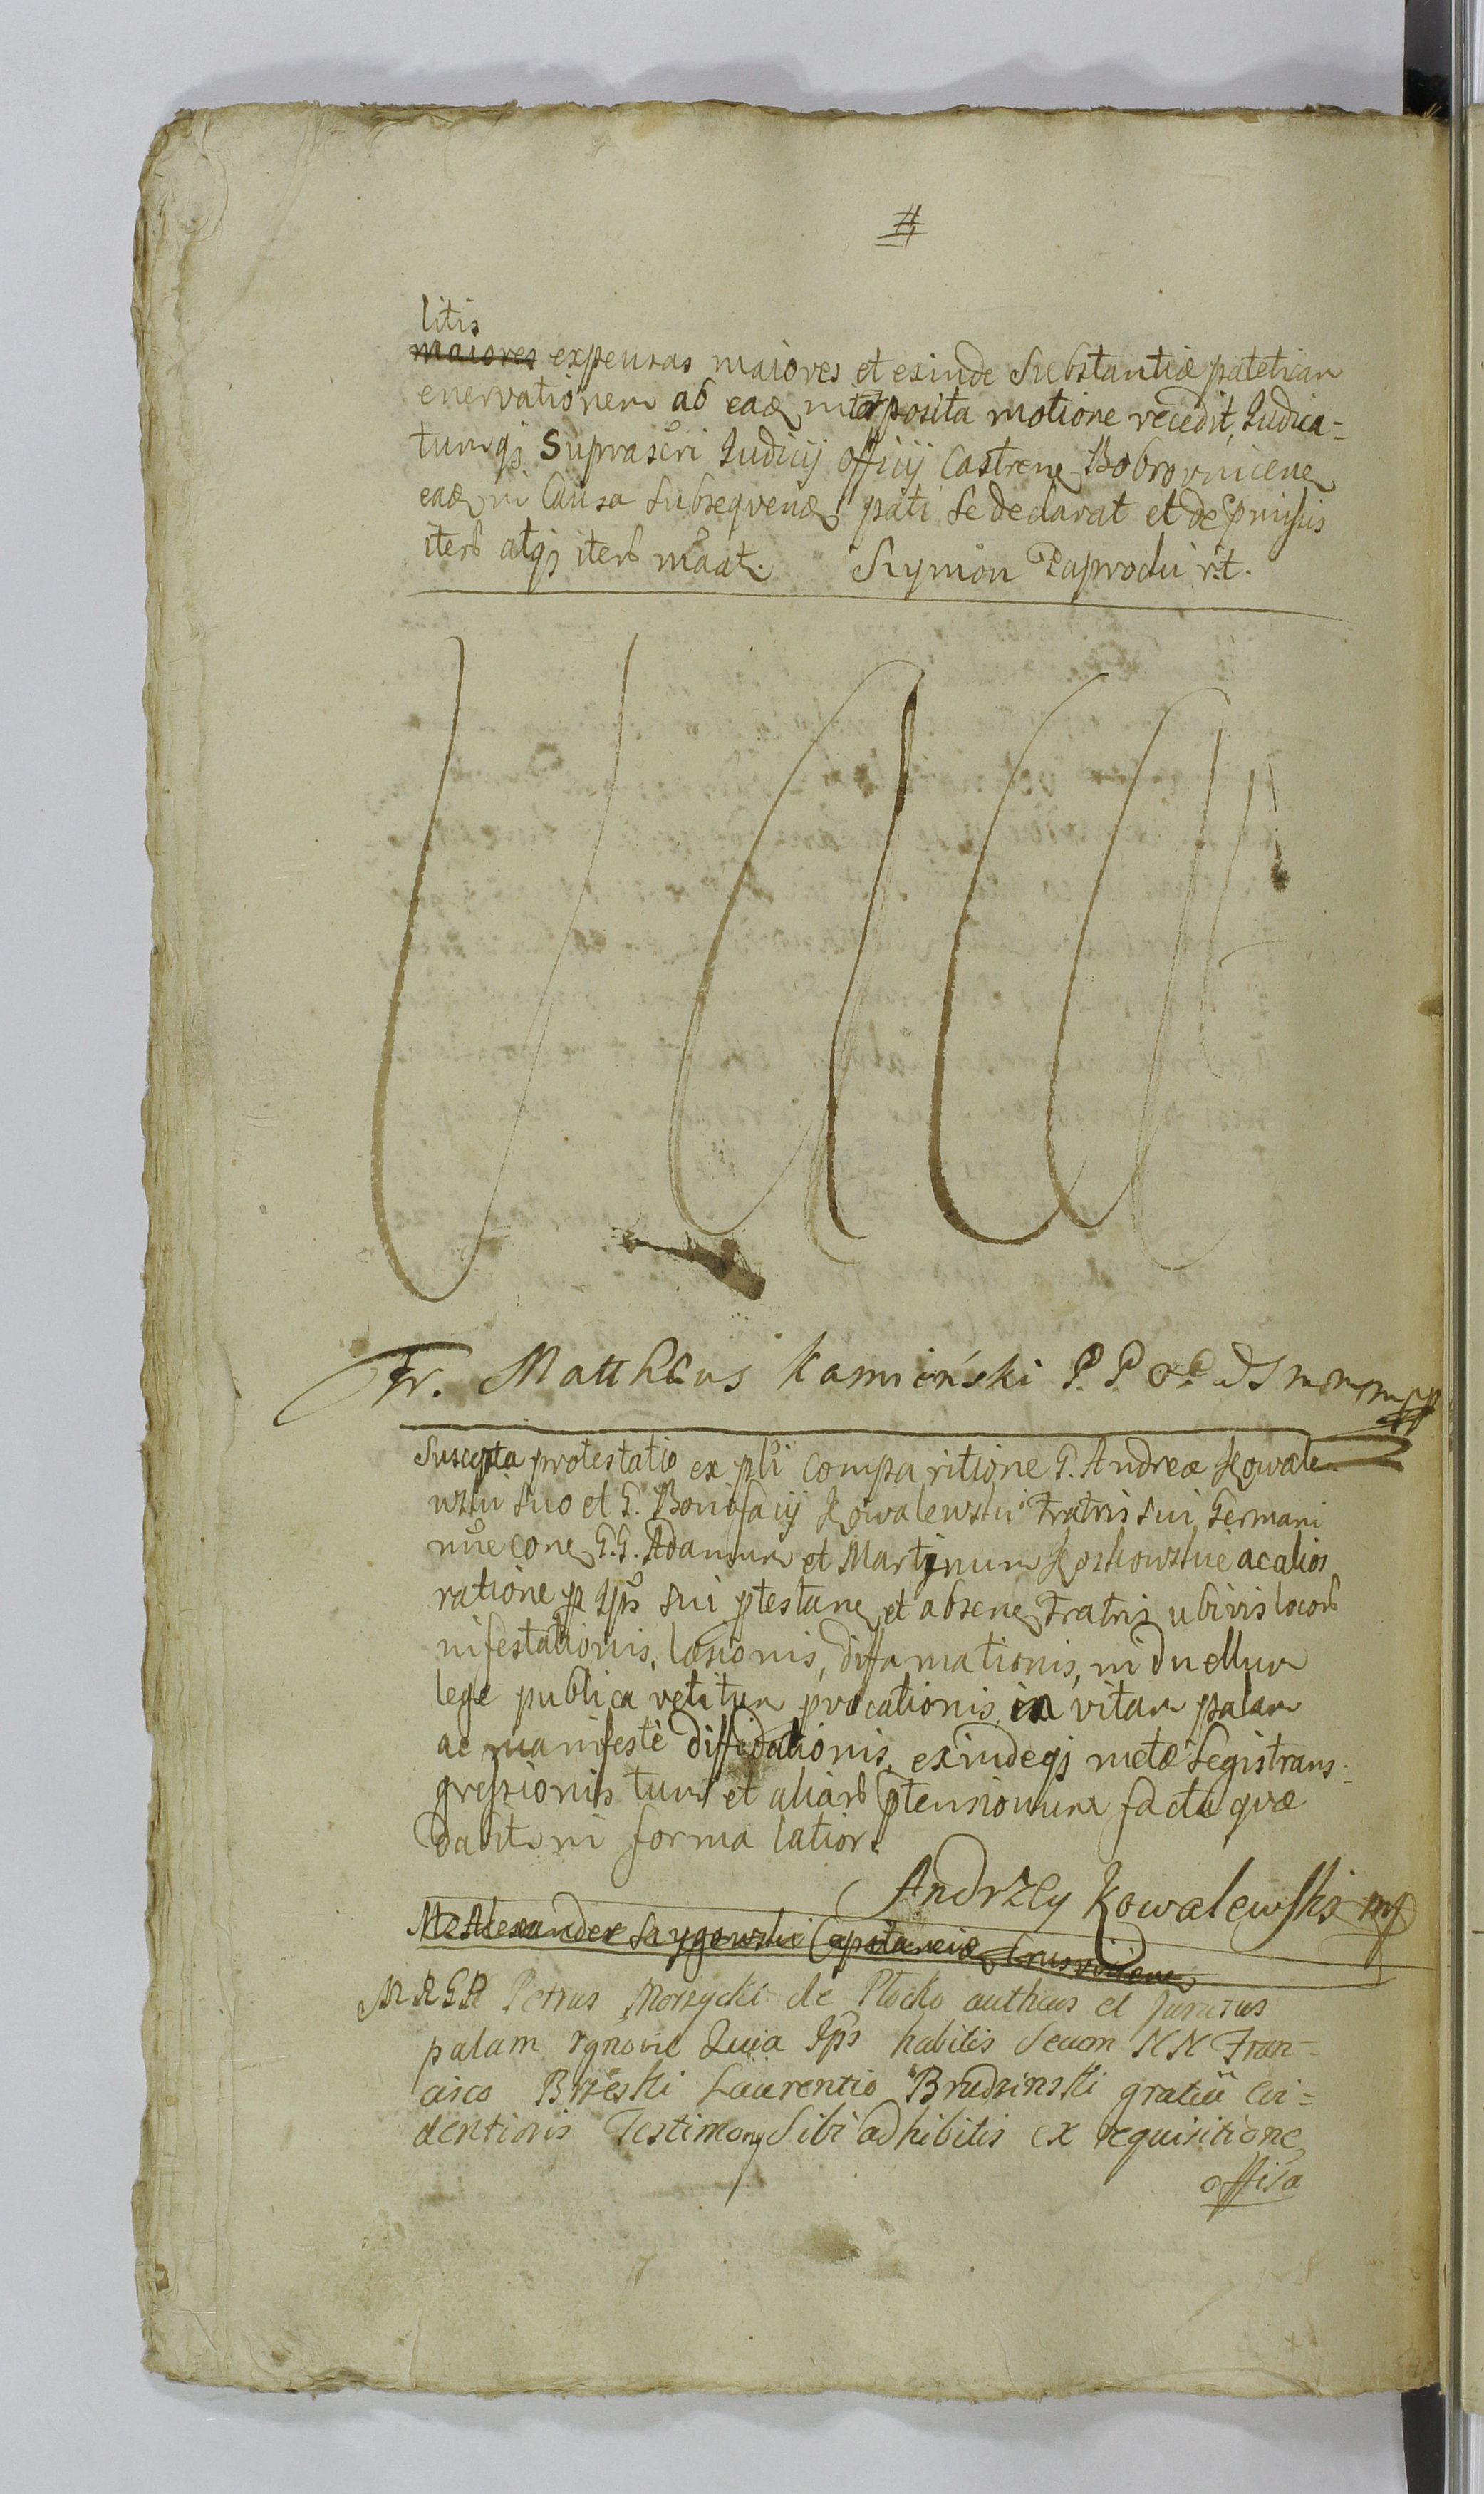 #
litis
maiores expensas maiores et exinde Substantiæ patetican
enervationem ab eaq interposita motione recedit, Judica=
tumqȝ Suprascri Judicij Officij Castren Bobrovnicen
eaq in Causa Subsequenq pati Se declarat et de præmissis
iterb atqȝ iterb maat. Szymon Paprocki r.t.
Fr. Mattheus Kamieński P. P.
Suscepta protestatio ex pti comparitione G. Andreæ Kowale
wski suo et G. Bonifacij Kowalewski Fratris sui Germani
nue con G.G. Adamum et Martinum Koskowskie ac alios
ratione p Ips sui ptestan et absen Fratris ubivis locorb
nifestationis, læsionis, diffamationis, in Duellum
lege publica vetitum provocationis in vitam palam
ac manifestè diffidationis, exindeqȝ metæ Legis trans-
gressionis tum et aliarb ptensionum facta quæ
dabit in forma latiori.
Andrzey Kowalewski mp
M Alexander Szygowski Capitaneio Crusvicien
M R G R Petrus Morzycki de Plocko autheus et Juratus
palam rgnovit Quia Ips habitis Secum N N Fran=
cisco Brzeski Laurentio Brudzinski gratiu Evi=
dentioris Testimony Sibi adhibitis ex requisitione
offisa